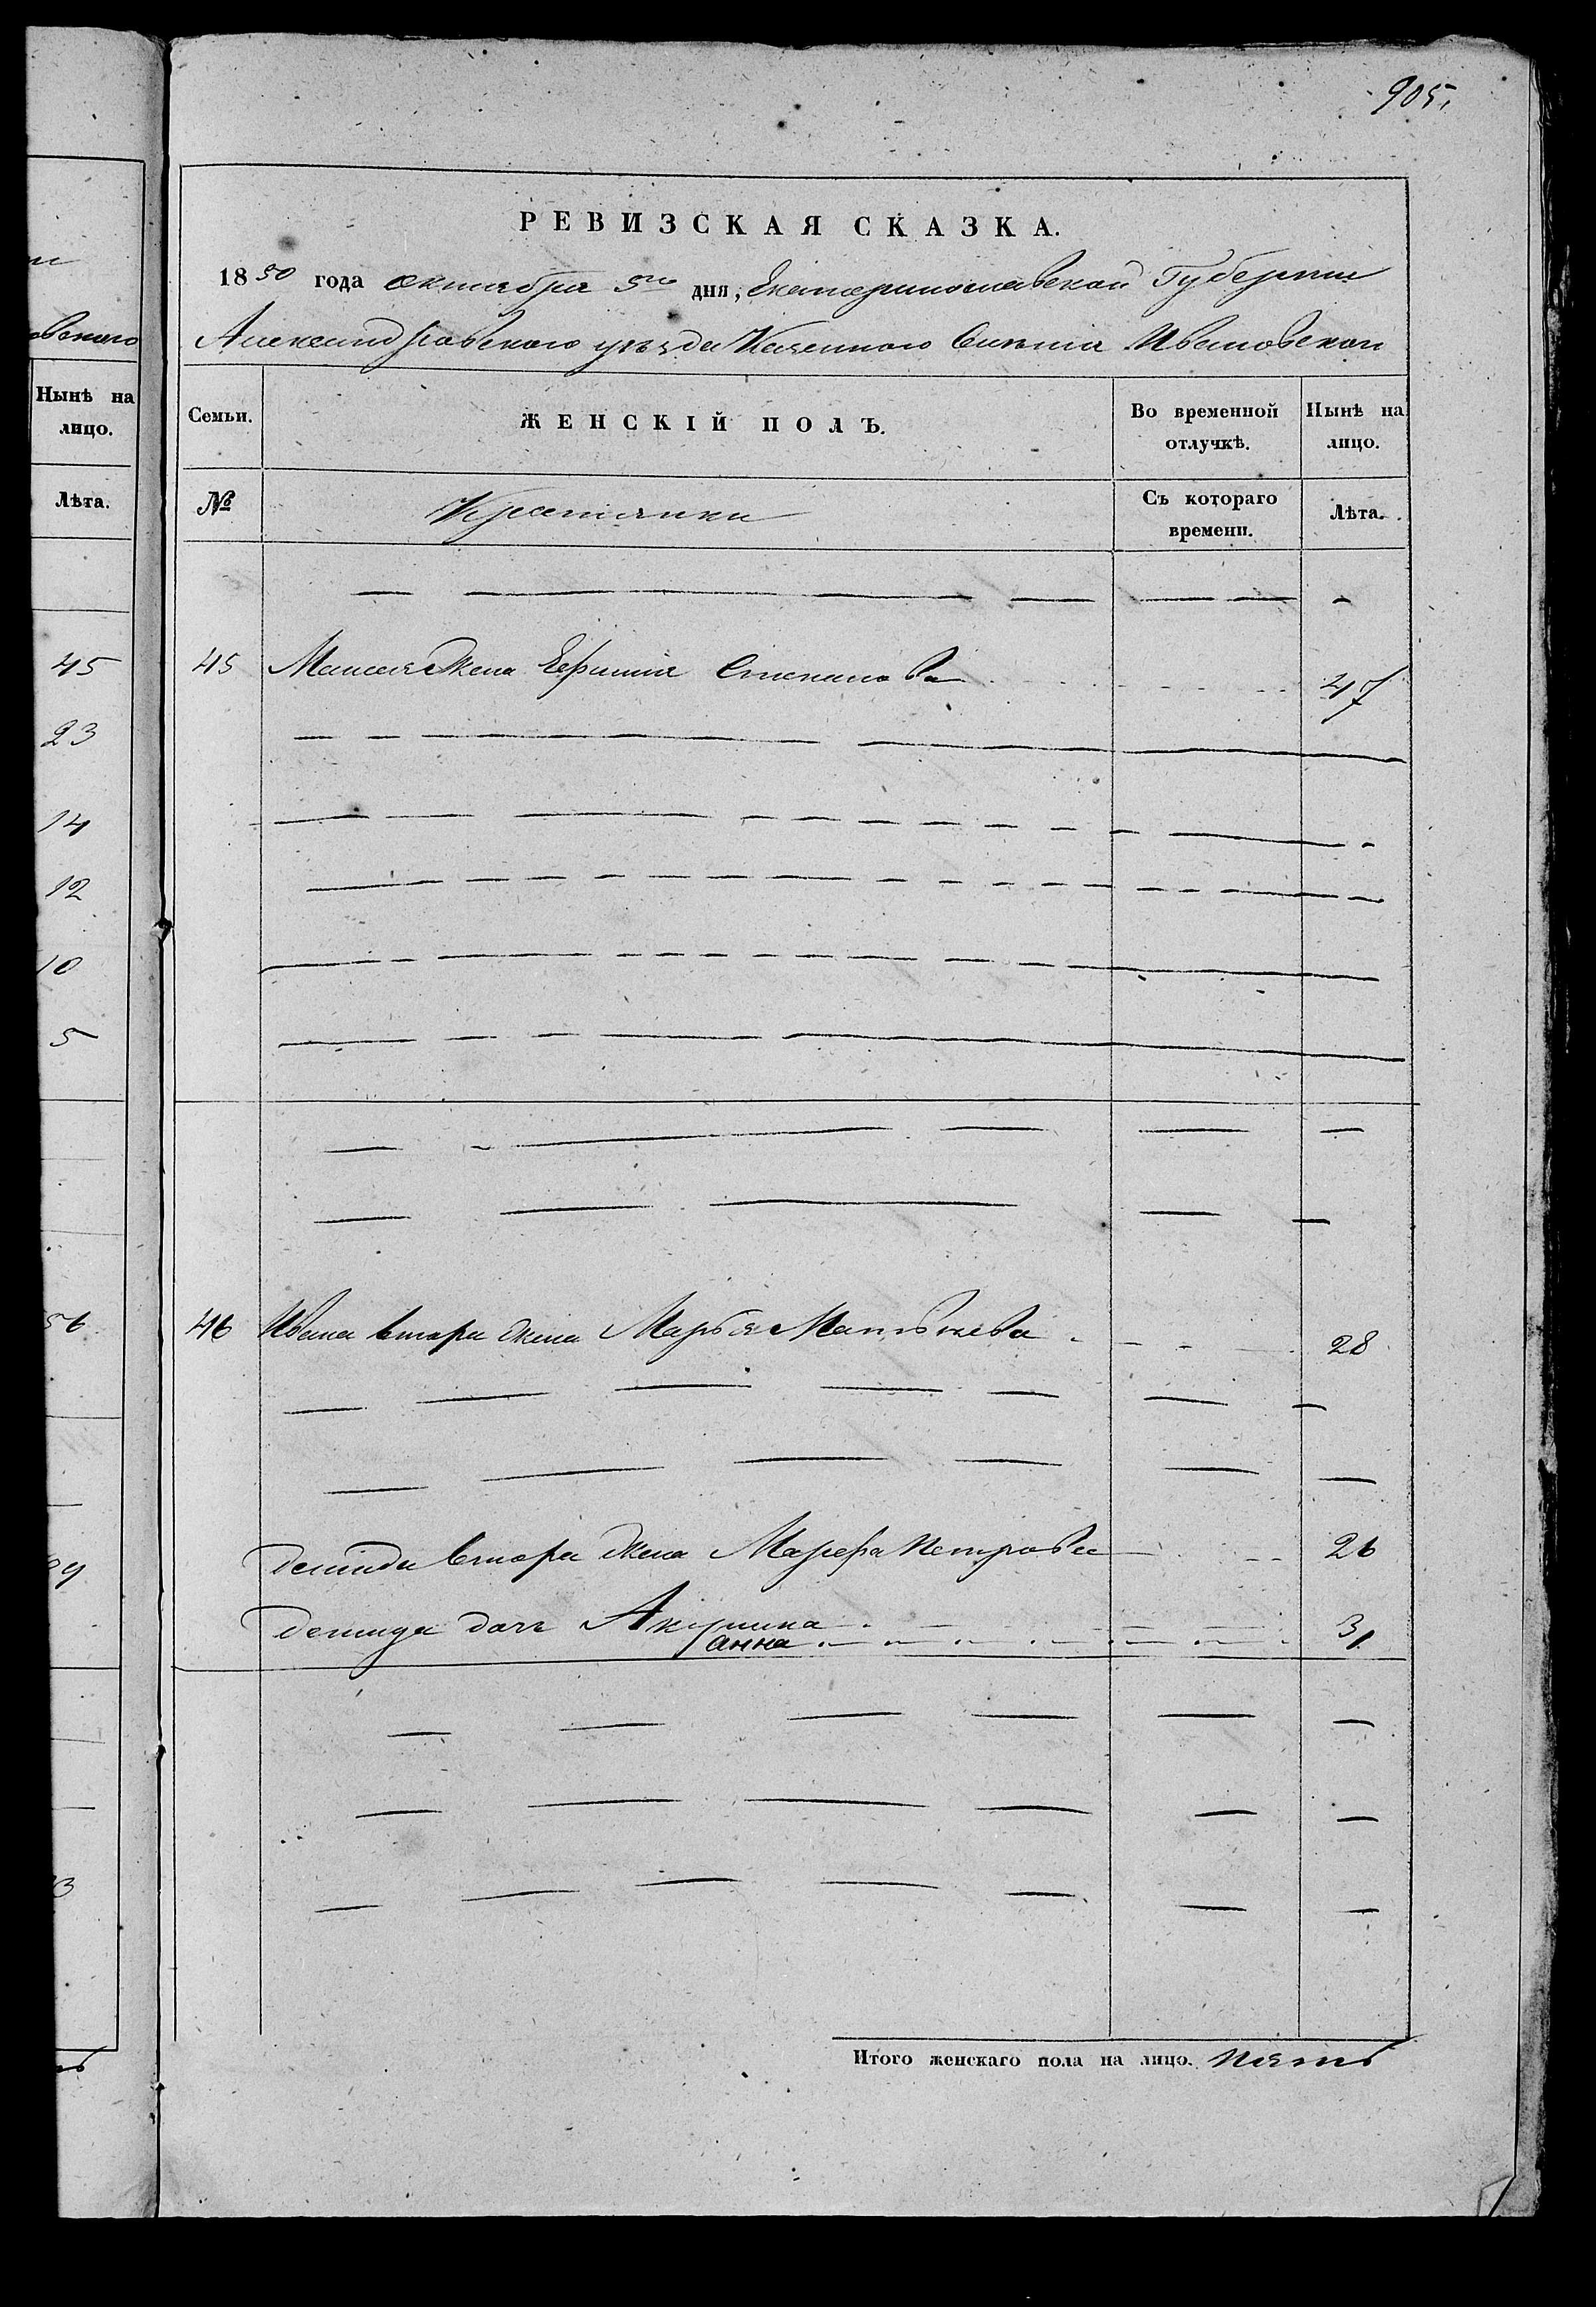 905.
РЕВИЗСКАЯ СКАЗКА.
1850 года октября 5го дня, Екатеринославской Губернии
Александровского уезда Казенного Селения Ивановской
Семьи.
ЖЕНСКІЙ ПОЛЪ.
Во временной отлучкѣ.
Нынѣ на лицо.
№
Крестянки
Съ котораго времени.
Лѣта.
45 Моисея Жена Ефимия Степанова 47
46 Ивана втора жена Марья Матвѣева 28
Демида втора жена Марфа Петрова 26
Демида доч Акулина
анна 3/1
Итого женскаго пола на лицо. пять
вского
Нынѣ на
лицо.
Лѣта.
45
23
14
12
10
5
56